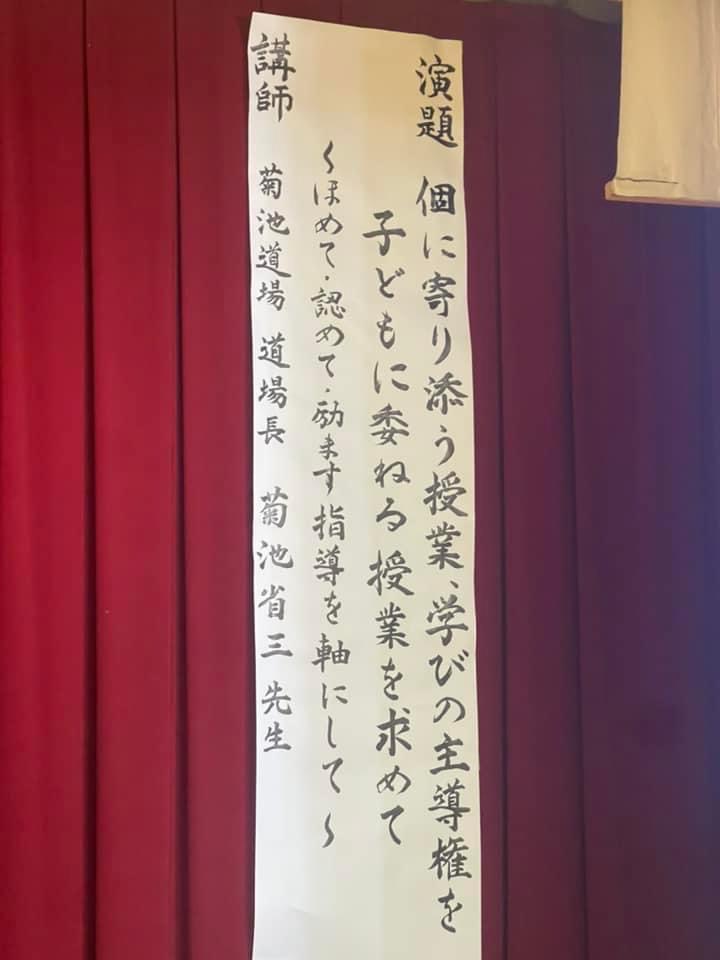 演題 個に寄り添う授業、学びの主導権を
子どもに委ねる授業を求めて
～ほめて・認めて・励ます指導を軸にして～
講師 菊池道場 道場長 菊池省三 先生